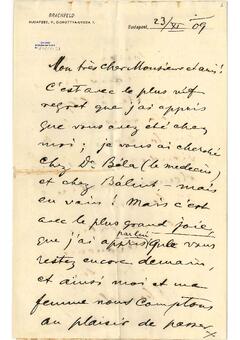 BRACHFELD
BUDAPEST, V., DOROTTYA-UTCA 1.
Budapest, 23/XI 09
Mon très cher Monsieur et ami!
C'est avec le plus vif
regret que j'ai appris
que vous avez été chez
moi; je vous ai cherché
chez Dr Béla (le médecin)
et chez Bálint – mais
en vain! Mais c'est
avec le plus grand joie,
que j'ai appris que vous
restez encore demain,
et ainsi moi et ma
femme nous comptons
au plaisir de passer